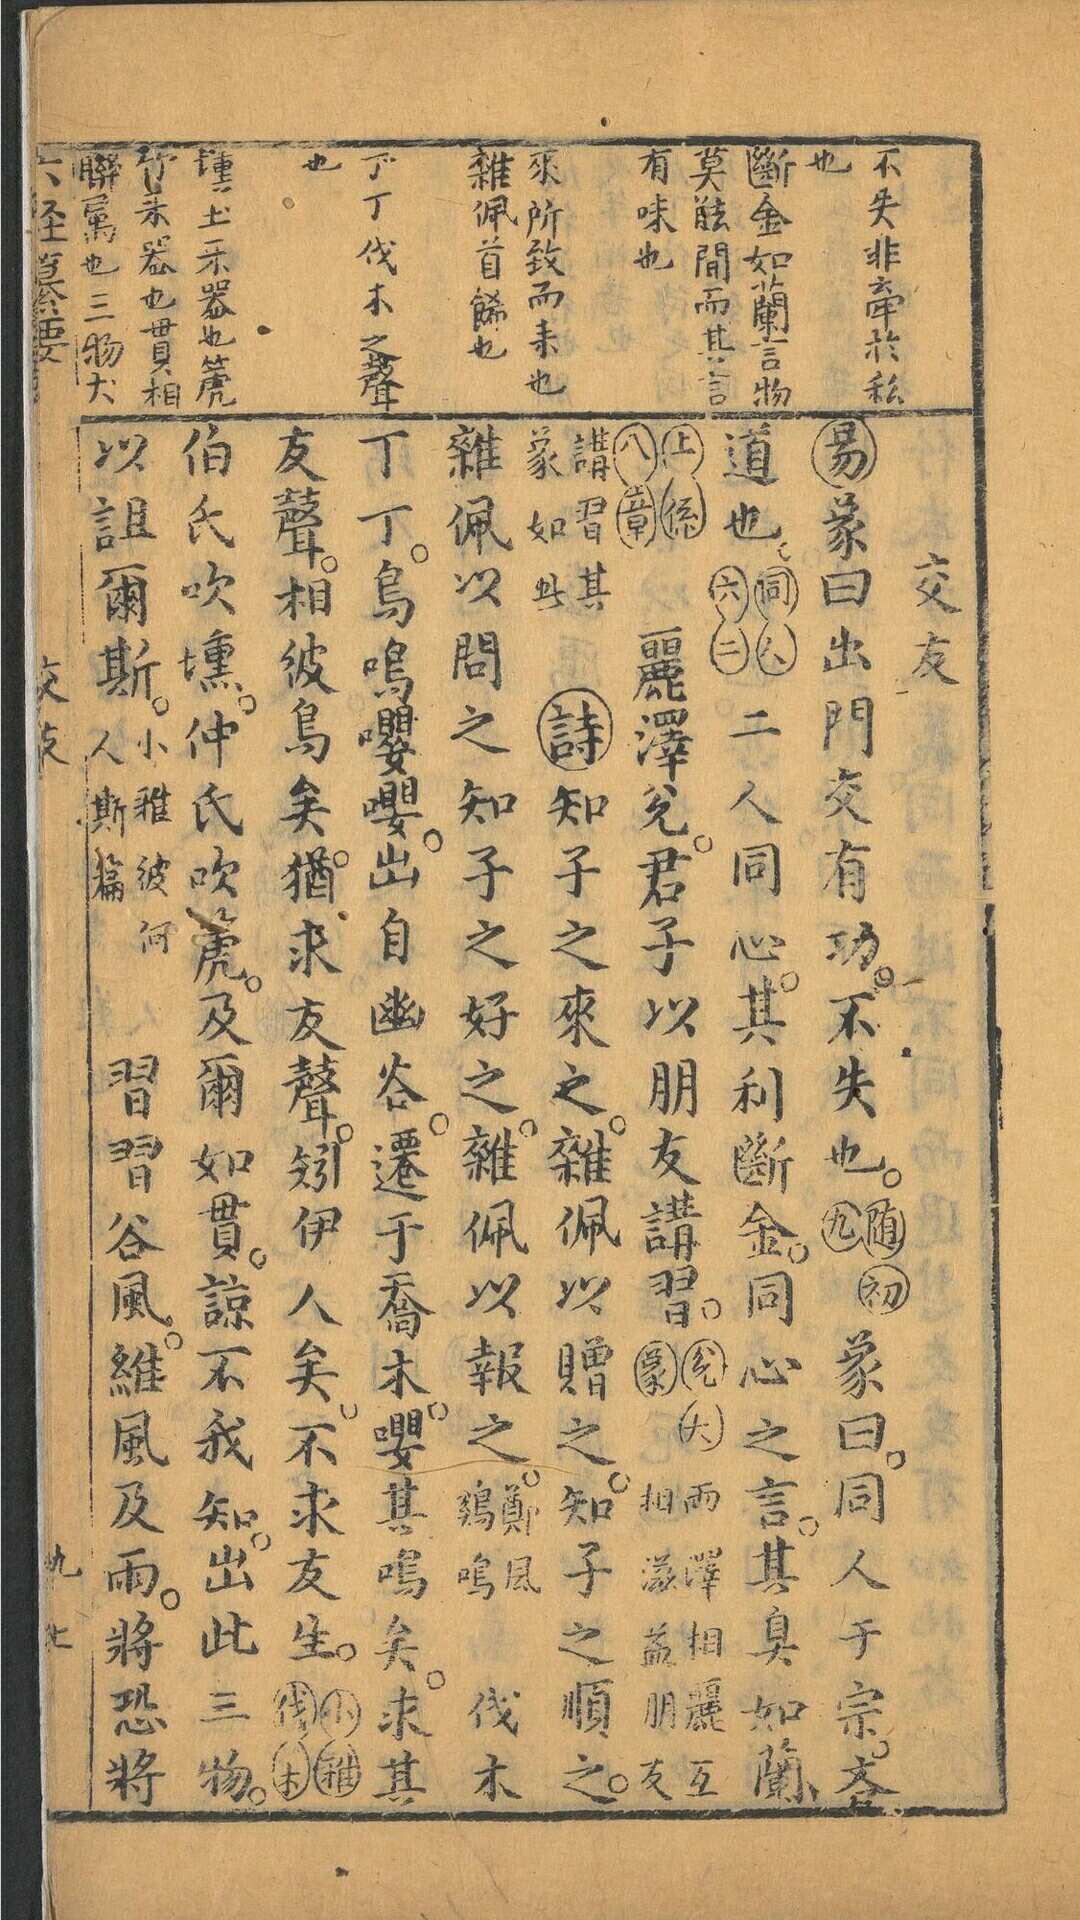 不失非牽於私
也
斷金如蘭言物
莫能間而其言
有味也
來所致而来也
雜佩首餙也
丁丁伐木之聲
也
壎土樂器也篪
竹樂器也貫相
聯屬也三物犬
交友
易象曰出門交有功不失也隨初九象曰同人于宗吝
道也同人六二二人同心其利斷金同心之言其臭如蘭
上係八章麗澤兌君子以朋友講習兌大象兩澤相麗互相滋益朋友
講習其象如此詩知子之來之雜佩以贈之知子之順之
雜佩以問之知子之好之雜佩以報之鄭風鷄鳴伐木
丁丁鳥鳴嚶嚶出自幽谷遷于喬木嚶其鳴矣求其
友聲相彼鳥矣猶求友聲矧伊人矣不求友生小雅伐木
伯氏吹壎仲氏吹篪及爾如貫諒不我知出此三物
以詛爾斯小雅彼何人斯篇習習谷風維風及雨將恐將
六經纂要
交友
九七